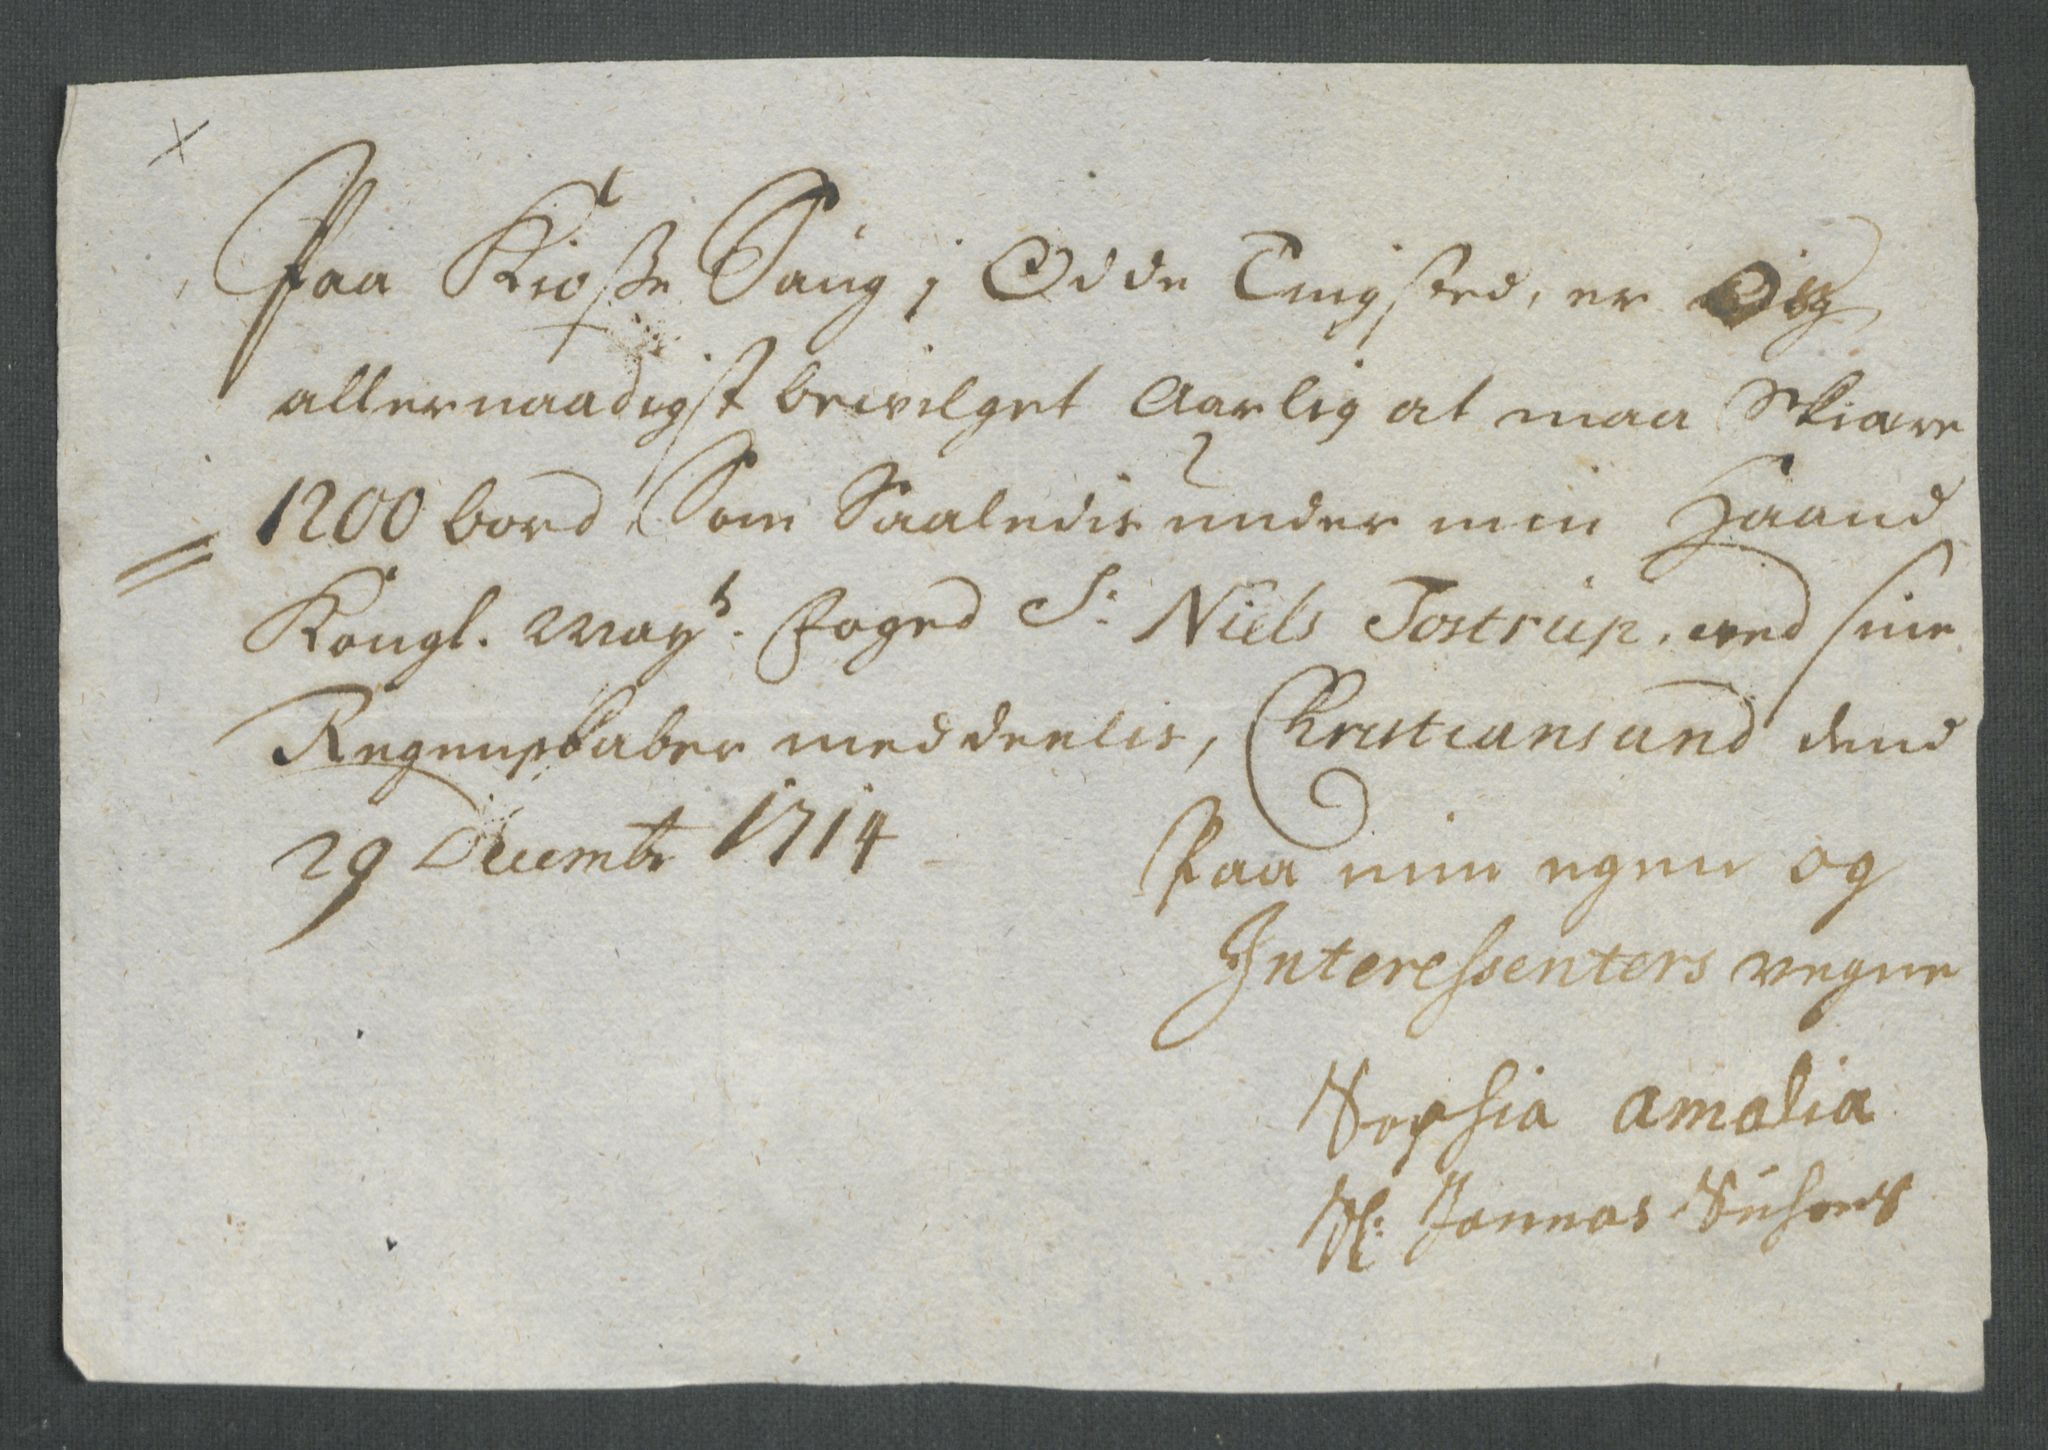 Paa Kiosse Saug j Odde Tingsted, er
allernaadigst bevilget Aarlig at maa Skiære
1200 bord, Som Saaledis under min Haand
Kongl. Mayts. Foged Sr: Niels Tostrup, ved sine
Regenskaber meddeelis, Christiansand dend
29 Decembr 1714
Paa min egen og
Interessenters vegne
Sophia Amalia
Sl: Jonnas